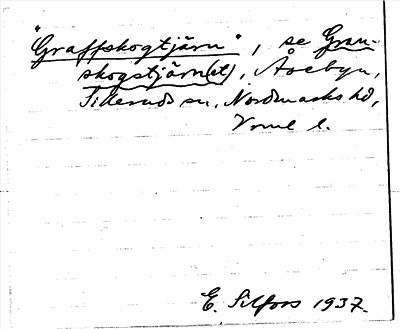 "Graffskogtjärn", se Gran-
skogstjärn(et), Åsebyn,
Silleruds sn., Nordmarks hd,
Vrml l.
E. Silfors 1937.